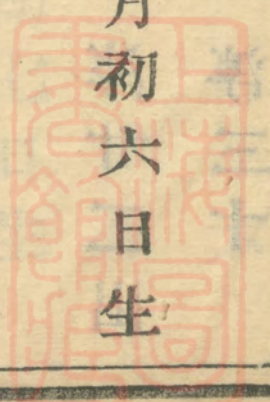 月初六日生
上海圖書館藏